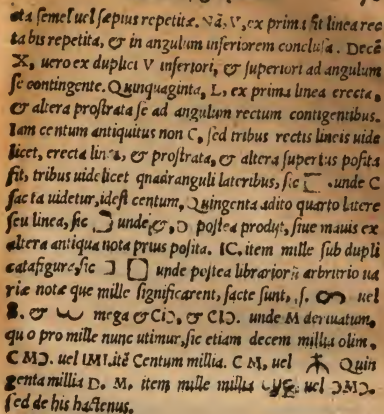 cta semel uel sæpius repetitæ. Nã, V, ex prima fit linea rec
ta bis repetita, & in angulum inferiorem conclusa. Decẽ
X, uero ex duplici V inferiori, & superiori ad angulum
se contingente. Quinquaginta, L, ex prima linea erecta,
& altera prostrata se ad angulum rectum contigentibus.
Iam centum antiquitus non C, sed tribus rectis lineis uide
licet, erecta linea, & prostrata, & altera superius posita
fit, tribus uidelicet qnadranguli lateribus, sic ⊏ .unde C
facta uidetur, idest centum, Quingenta adito quarto latere
seu linea, sic unde, Ɔ postea prodijt, siue mauis ex
altera antiqua nota prius posita. IC, item mille sub dupli
catafigure, sic unde postea librariorũ arbritrio ua
riæ notæ que mille significarent, facte sunt, .s. ∞ uel
8. & ω mega & CIƆ, & CIƆ. unde M deriuatum,
quo pro mille nunc utimur, sic etiam decem millia olim,
C MƆ. uel IMI. itẽ Centum millia. C M, uel Quin
genta millia D. M. item mille millia uel ƆMƆ.
sed de his hactenus.